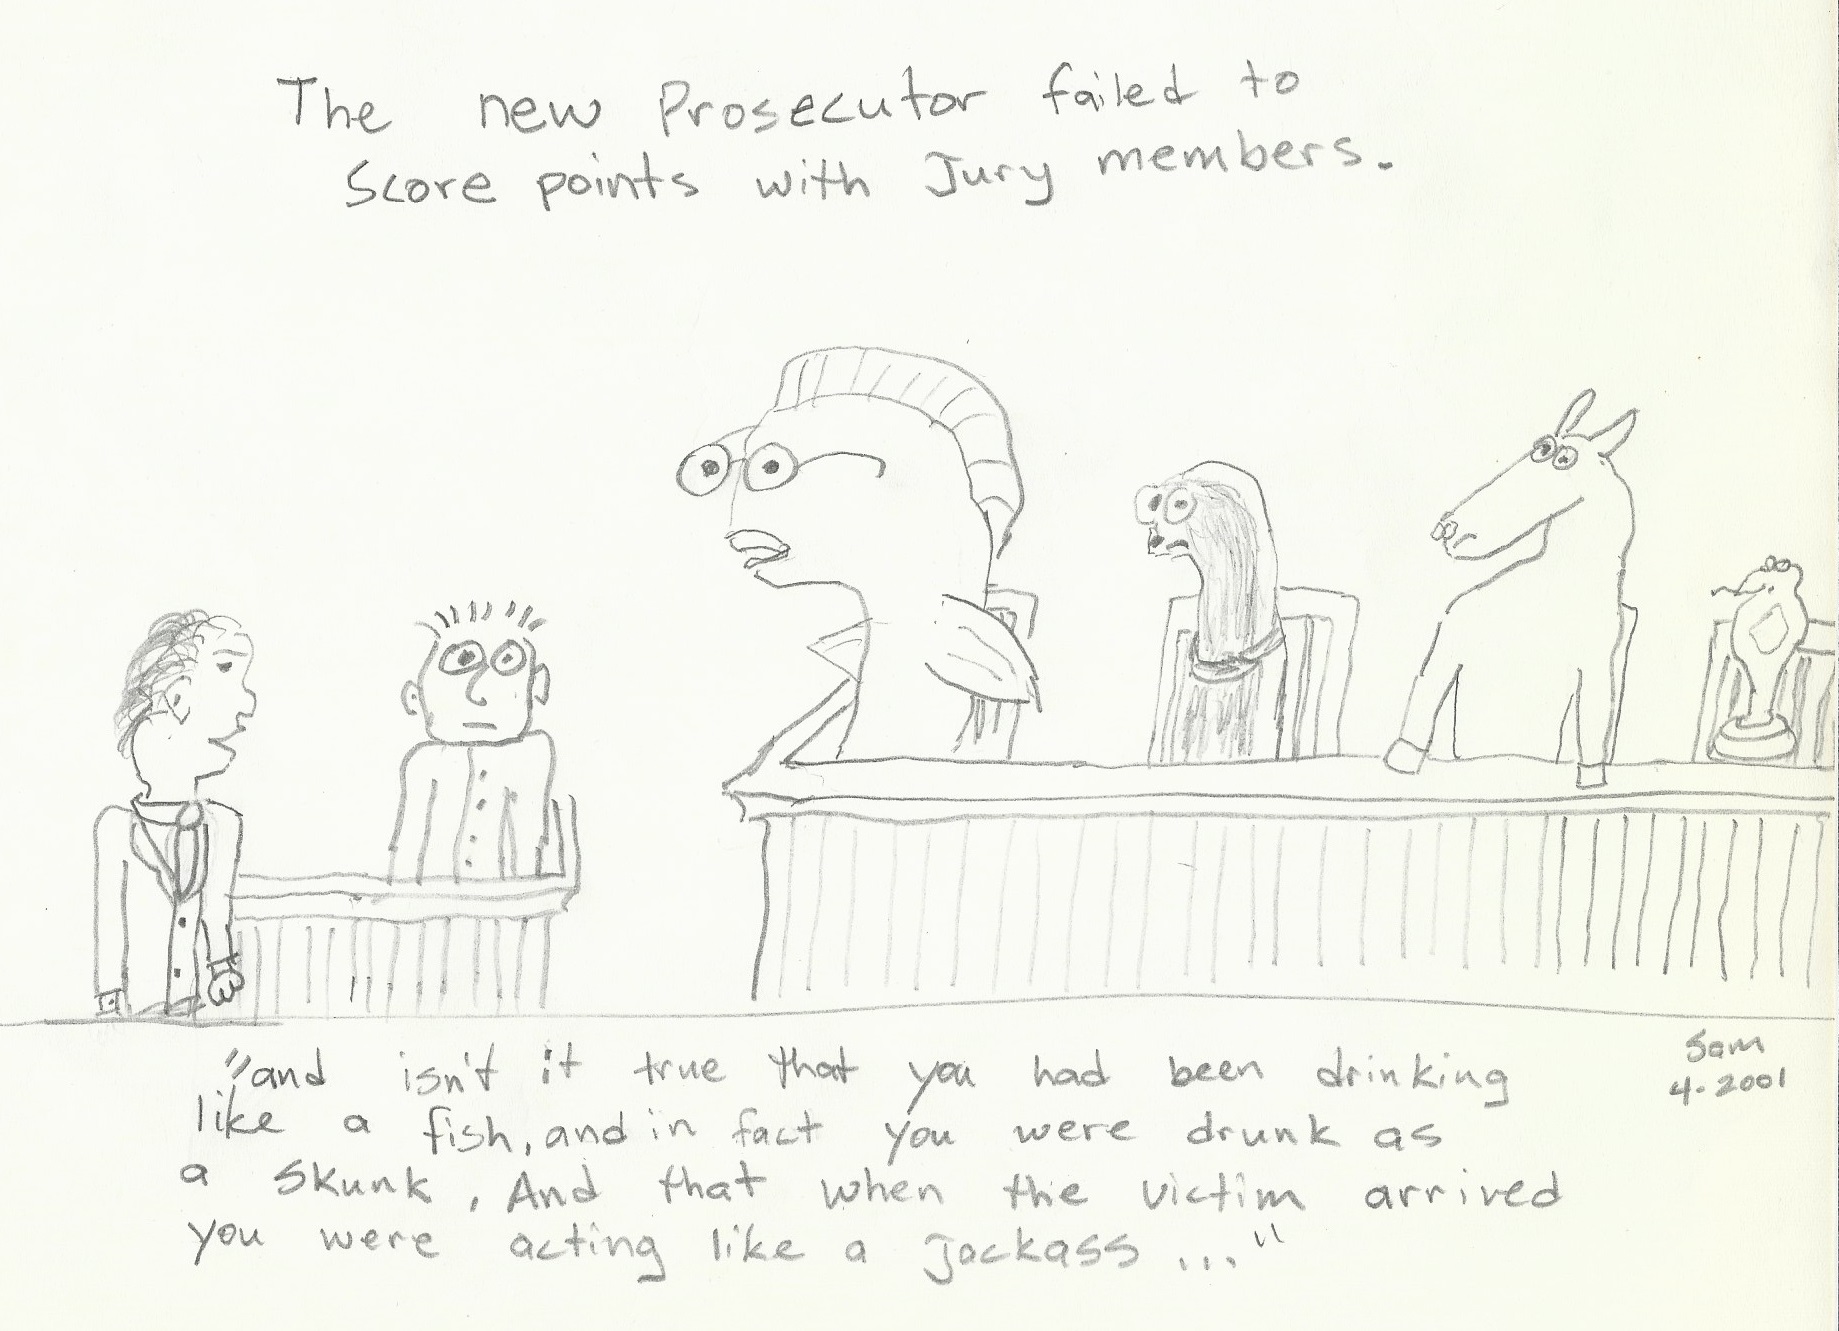 The new Prosecutor failed to
Score points with Jury members.
"and isn't it true that you had been drinking
like a fish, and in fact you were drunk as
a skunk, And that when the victim arrived
you were acting like a Jackass ..."
Sam
4-2001